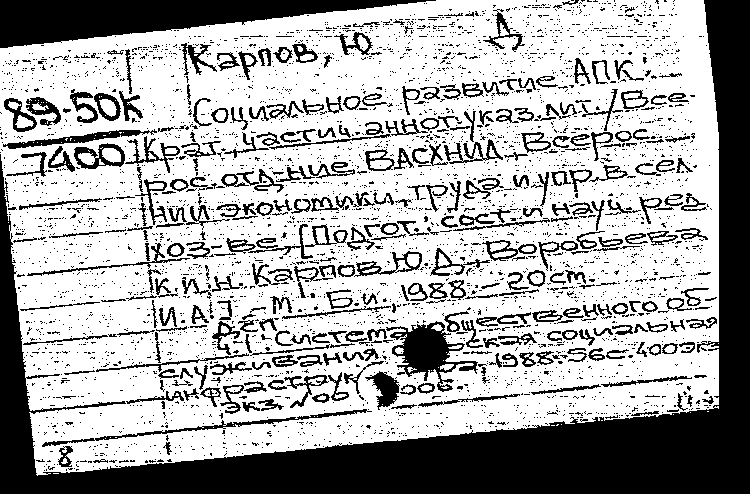 Карпов, Ю Д
89-50К
7400
Социальное развитие АПК:
Крат., частич. аннот. указ. лит. / Все-
рос. отд-ние ВАСХНИЛ, Всерос.
нии экономики, труда и упр. в сел.
хоз-ве; [Подгот.: сост. и науч. ред.
к.и.н. Карпов Ю.Д., Воробьева
И.А.] - М.: Б.и., 1988. - 20 см.
Ч.1: Система общественного об-
служивания. социальная
инфраструк 1988. 56с. 400экз
экз. №00
8